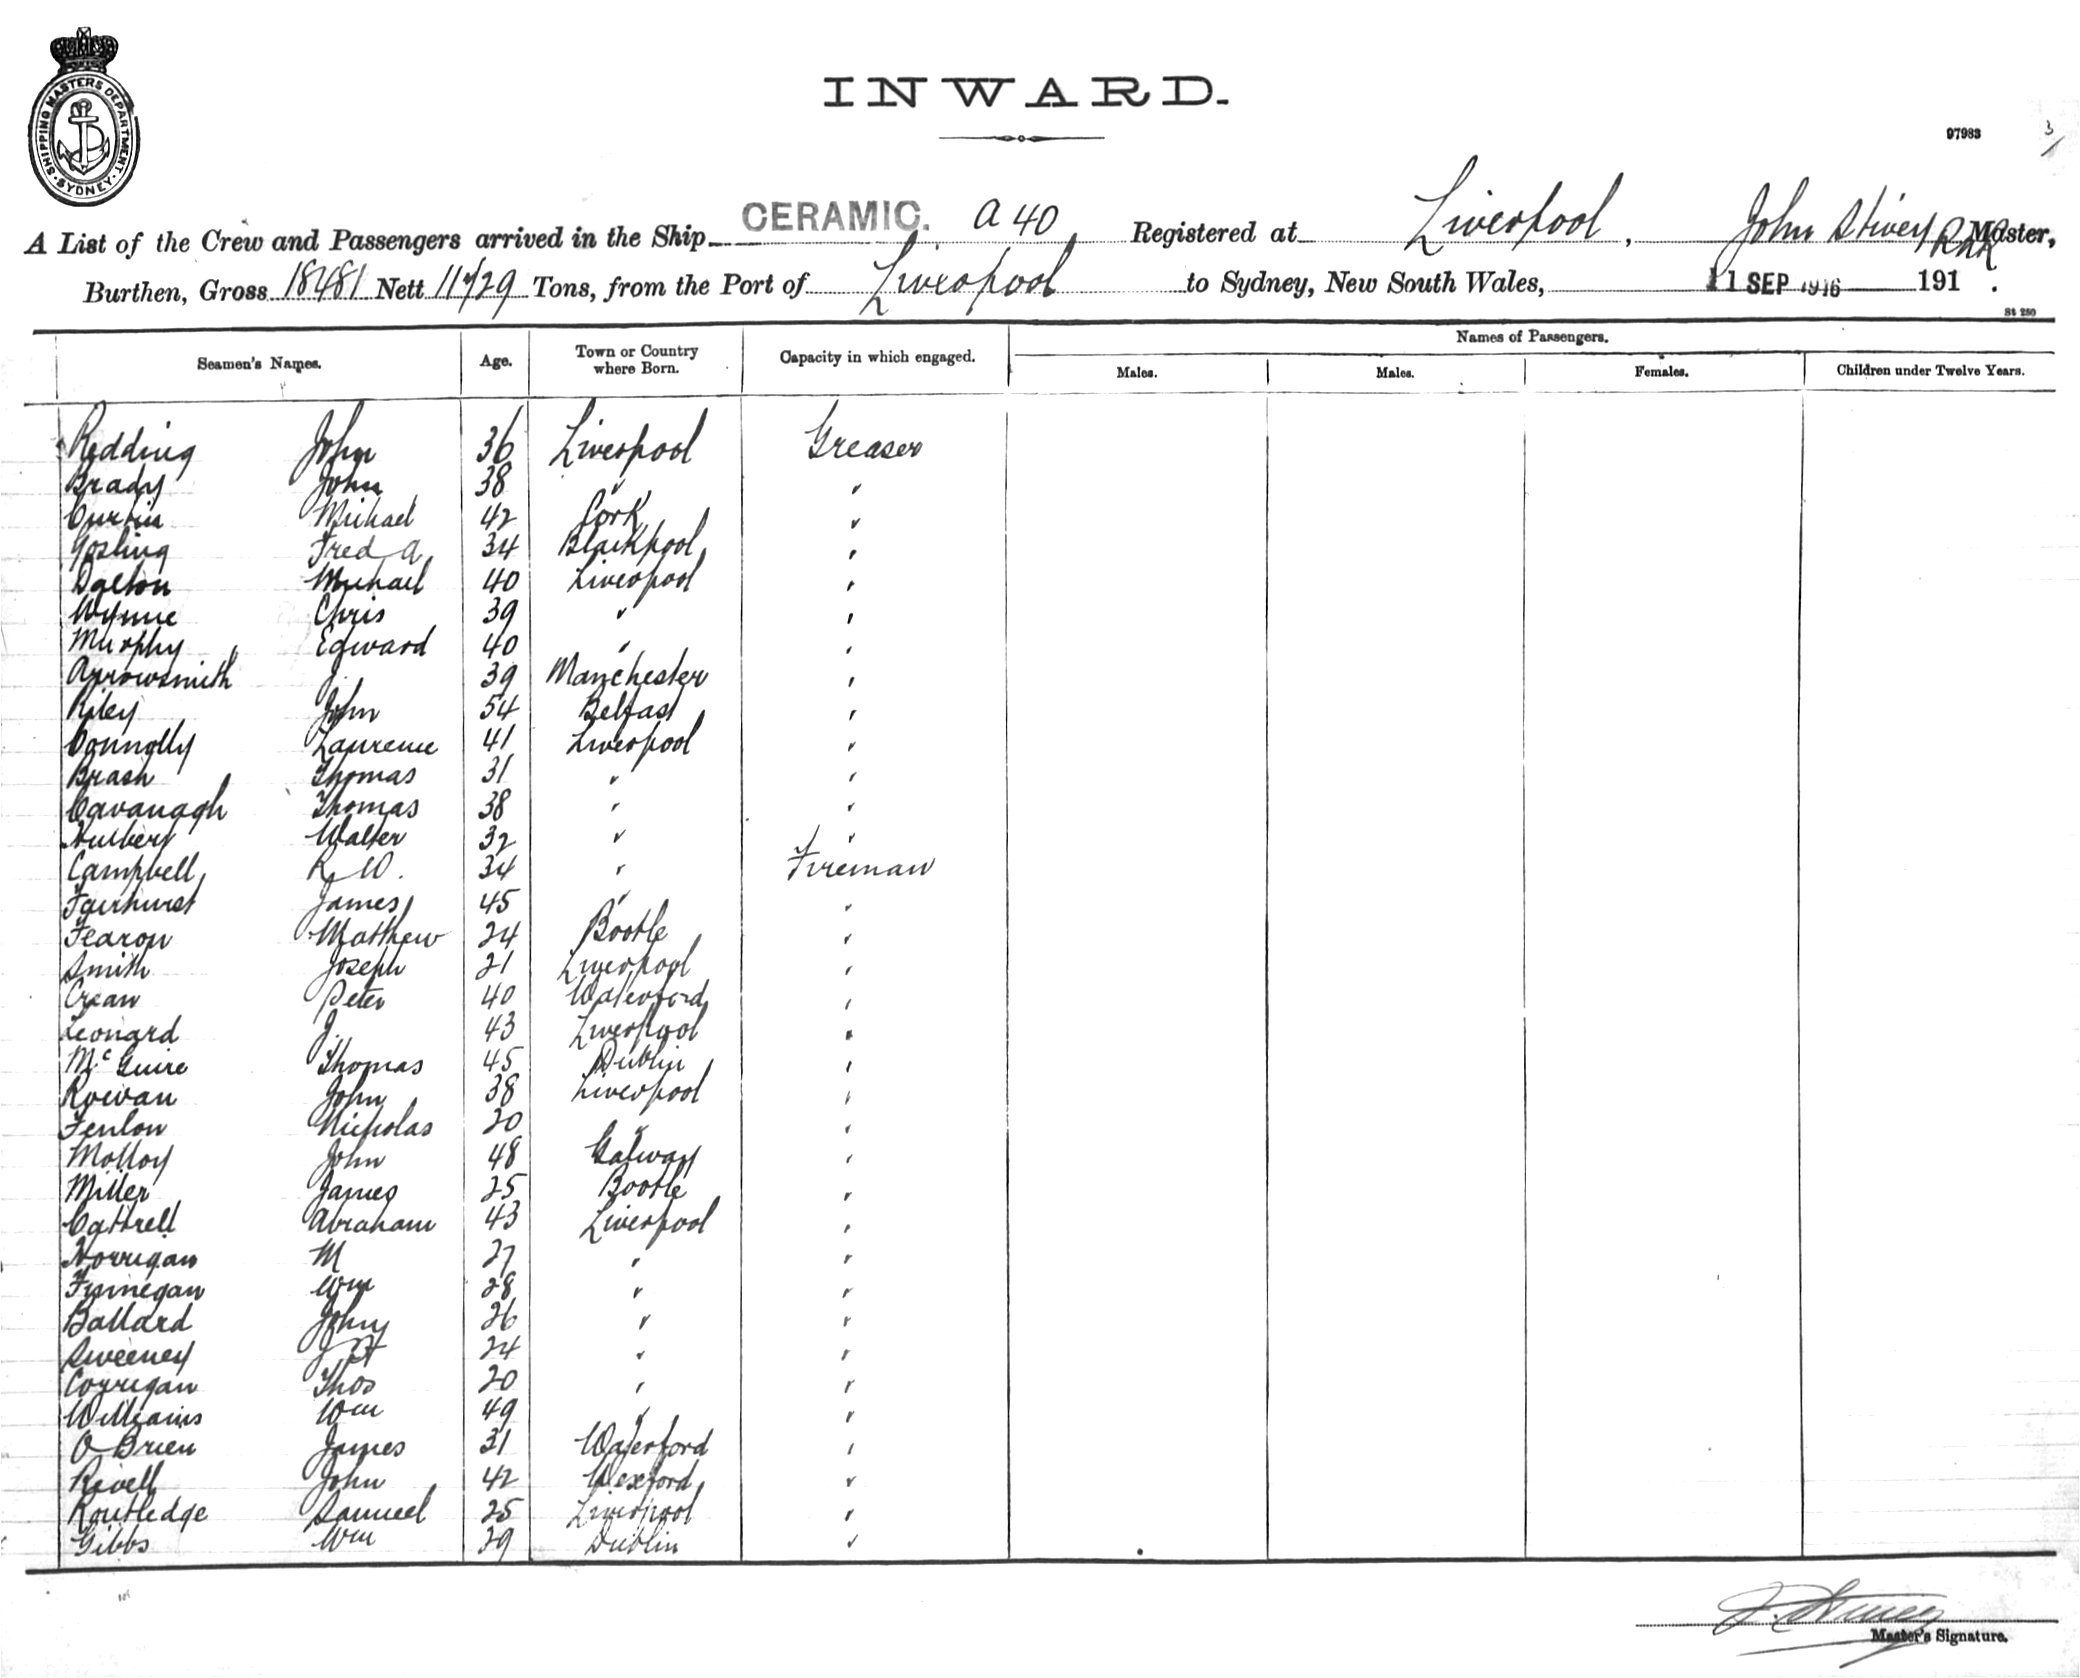 SHIPPING MASTERS DEPARTMENT. SYDNEY.
INWARD.
97983
3/
A List of the Crew and Passengers arrived in the Ship CERAMIC. A 40 Registered at Liverpool, John Stivey RNR Master,
Burthen, Gross 18481 Nett 11729 Tons, from the Port of Liverpool to Sydney, New South Wales, 11 SEP 1916 191 .
St 250
Seamen's Names. Age. Town or Country where Born. Capacity in which engaged. Names of Passengers.
Males. Males. Females. Children under Twelve Years.
Redding John 36 Liverpool Greaser
Brady John 38 " "
Curtin Michael 42 Cork "
Gosling Fred A 34 Blackpool "
Dalton Michael 40 Liverpool "
Wynne Chris 39 " "
Murphy Edward 40 " "
Arrowsmith J. 39 Manchester "
Riley John 54 Belfast "
Connolly Laurence 41 Liverpool "
Brash Thomas 31 " "
Cavanagh Thomas 38 " "
Walter 32 " "
Campbell R W. 34 " Fireman
Fairhurst James 45 " "
Fearon Matthew 24 Bootle "
Smith Joseph 21 Liverpool "
Crean Peter 40 Waterford "
Leonard J. 43 Liverpool "
McGuire Thomas 45 Dublin "
Rowan John 38 Liverpool "
Fenlon Nicholas 20 " "
Molloy John 48 Galway "
Miller James 25 Bootle "
Cattrell Abraham 43 Liverpool "
Horrigan M 27 " "
Finnegan Wm 28 " "
Ballard John 26 " "
Sweeney 24 " "
Corrigan Thos 20 " "
Williams Wm 49 " "
O Brien James 31 Waterford "
Rivell John 42 Wexford "
Routledge Samuel 25 Liverpool "
Gibbs Wm 29 Dublin "
Master's Signature.